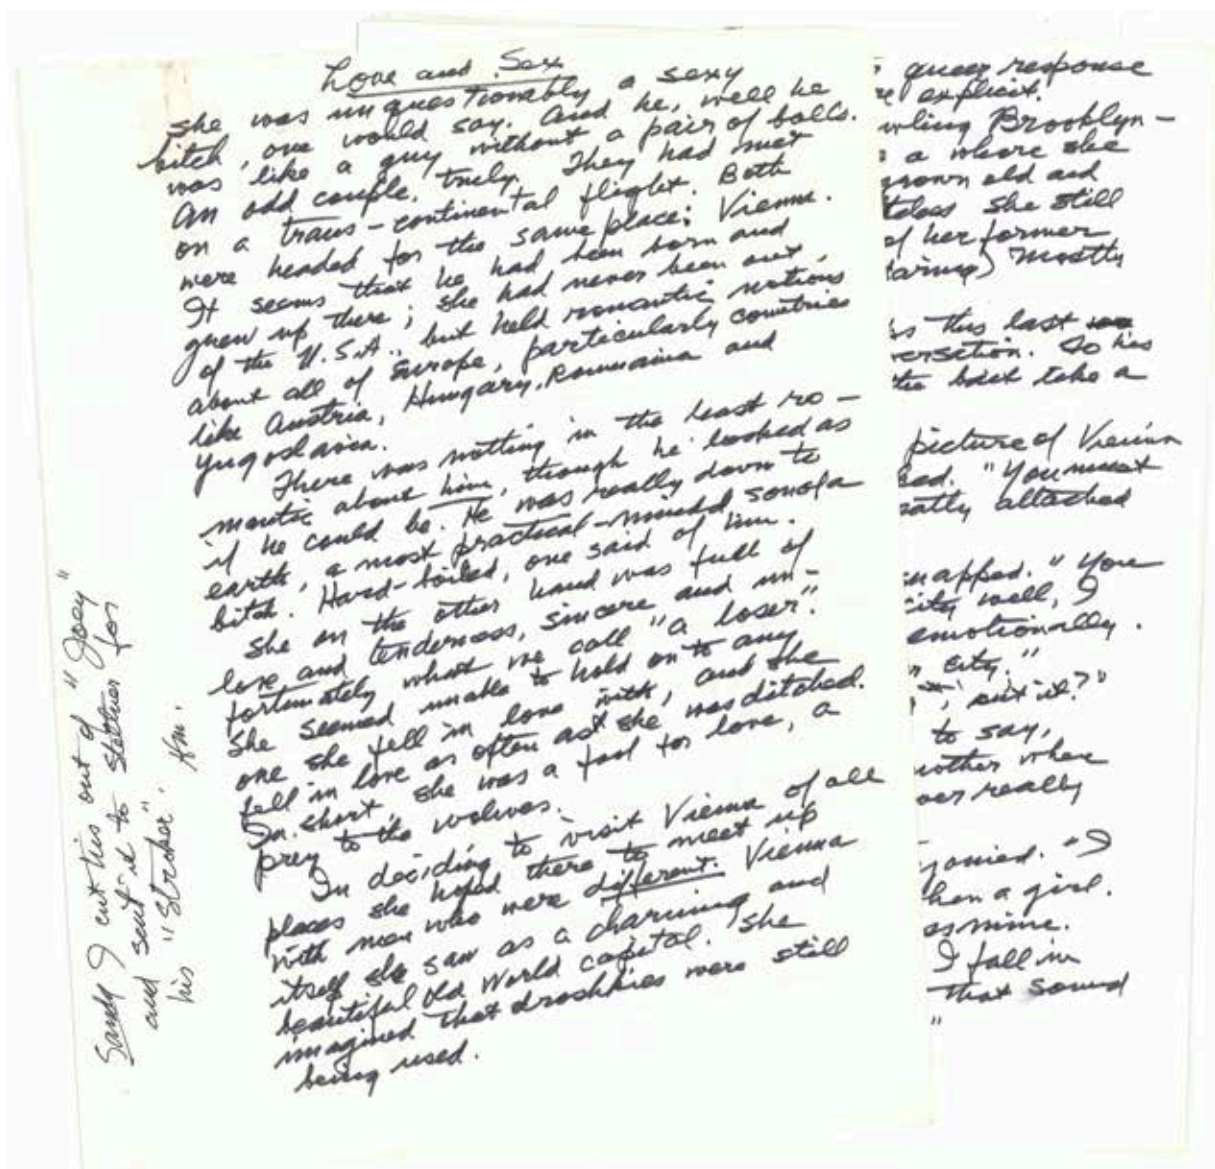 Love and Sex
She was unquestionably a sexy
bitch, one would say. And he, well he
was like a guy without a pair of balls.
An odd couple, truly. They had met
on a trans-continental flight. Both
were headed for the same place: Vienna.
It seems that he had been born and
grew up there; she had never been out
of the U.S.A., but held romantic notions
about all of Europe, particularly countries
like Austria, Hungary, Roumania and
Yugoslavia.
There was nothing in the least ro-
mantic about him, though he looked as
if he could be. He was really down to
earth, a most practical-minded sonofa
bitch. Hard-boiled, one said of him.
She on the other hand was full of
love and tenderness, sincere and un-
fortunately what we call "a loser".
She seemed unable to hold on to any
one she fell in love with, and she
fell in love as often as she was ditched.
In short, she was a fool for love, a
prey to the wolves.
In deciding to visit Vienna of all
places she hoped there to meet up
with men who were different. Vienna
itself she saw as a charming and
beautiful Old World capital. She
imagined that droshkies were still
being used.
Sandy I cut this out of "Joey"
and sent it to Stettner for
his "Stroker". Hm.
queer response
explicit.
Brooklyn-
a whore she
grown old and
she still
of her former
mostly
this last
So his
the bait take a
picture of Vienna
"You must
attached
snapped. "You
city well, I
emotionally.
city."
isn't it?"
to say,
another when
really
"I
than a girl.
as mine.
I fall in
That sound
"